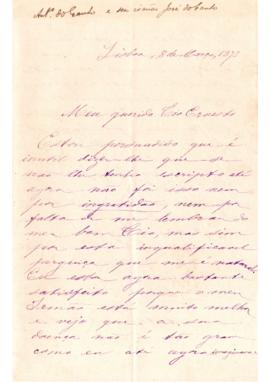 Antº. do Canto e seu irmão José do Canto
Lisboa, 8 de Março, 1873
Meu querido Tio Ernesto
Estou persuadido que é
inutil dizer-lhe que se
não lhe tenho escripto até
agora não foi isso nem
por ingratidão, nem por
falta de me lembrar do
meu bom Tio, mas sim
por esta inqualificavel
preguiça que me é natural.
Eu estou agora bastante
satisfeito porque o meu
está muito melhor
e vejo que a sua
doença não é tão grave
como eu até agora